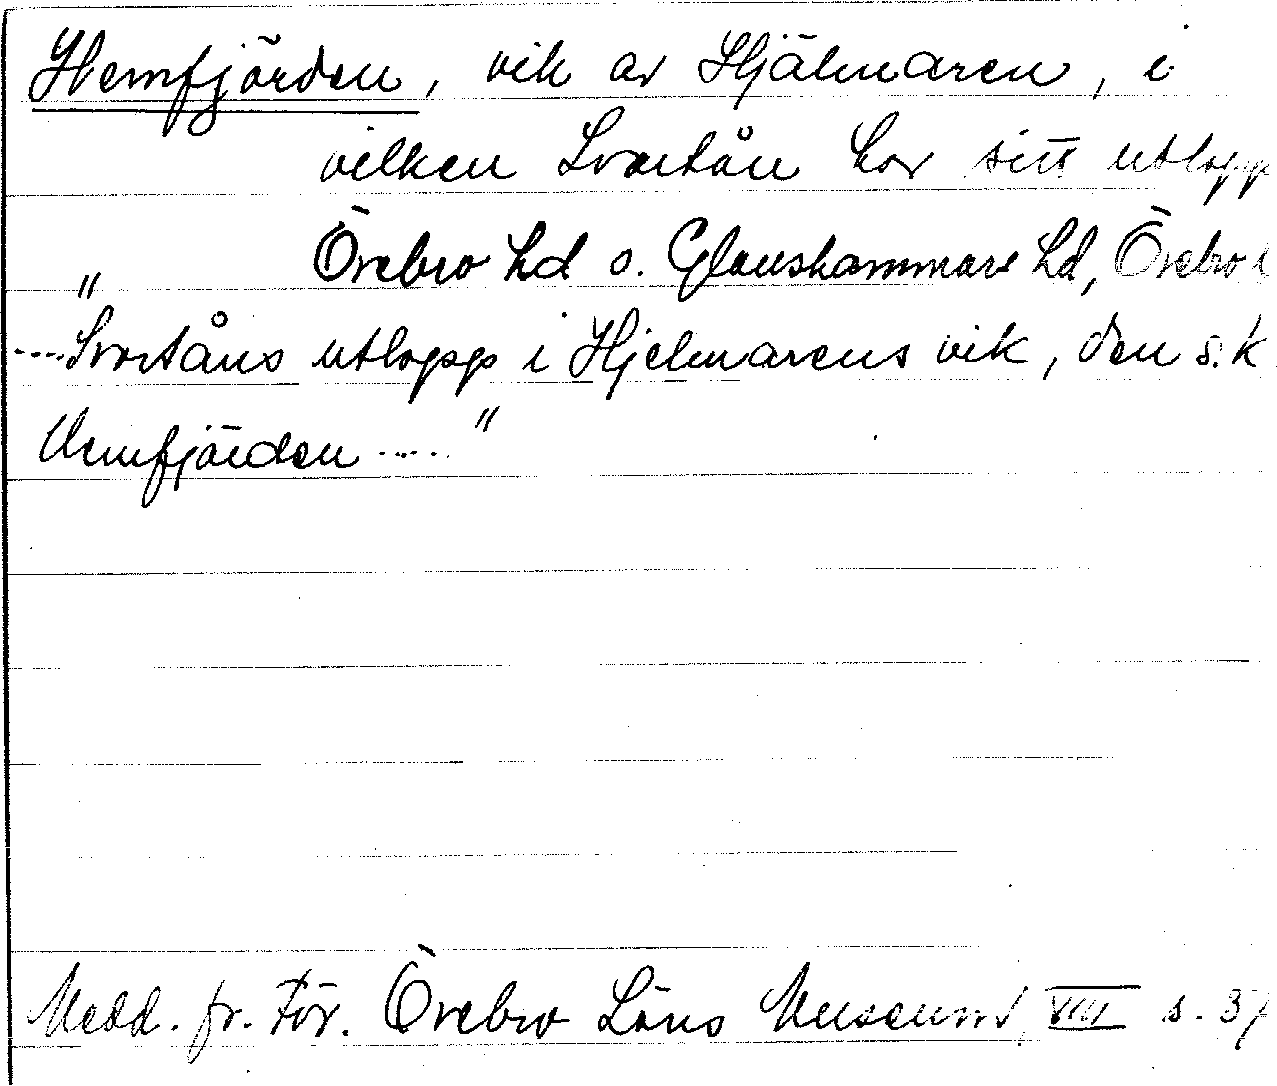 Hemfjärden, vik av Hjälmaren, i
vilken Svartån har sitt utlopp
Örebro hd o. Glanshammars hd, Örebro l
"
....Svartåns utlopp i Hjelmarens vik, den s.k
Hemfjärden ....."
Medd. fr. För. Örebro Läns Museum, VIII s.